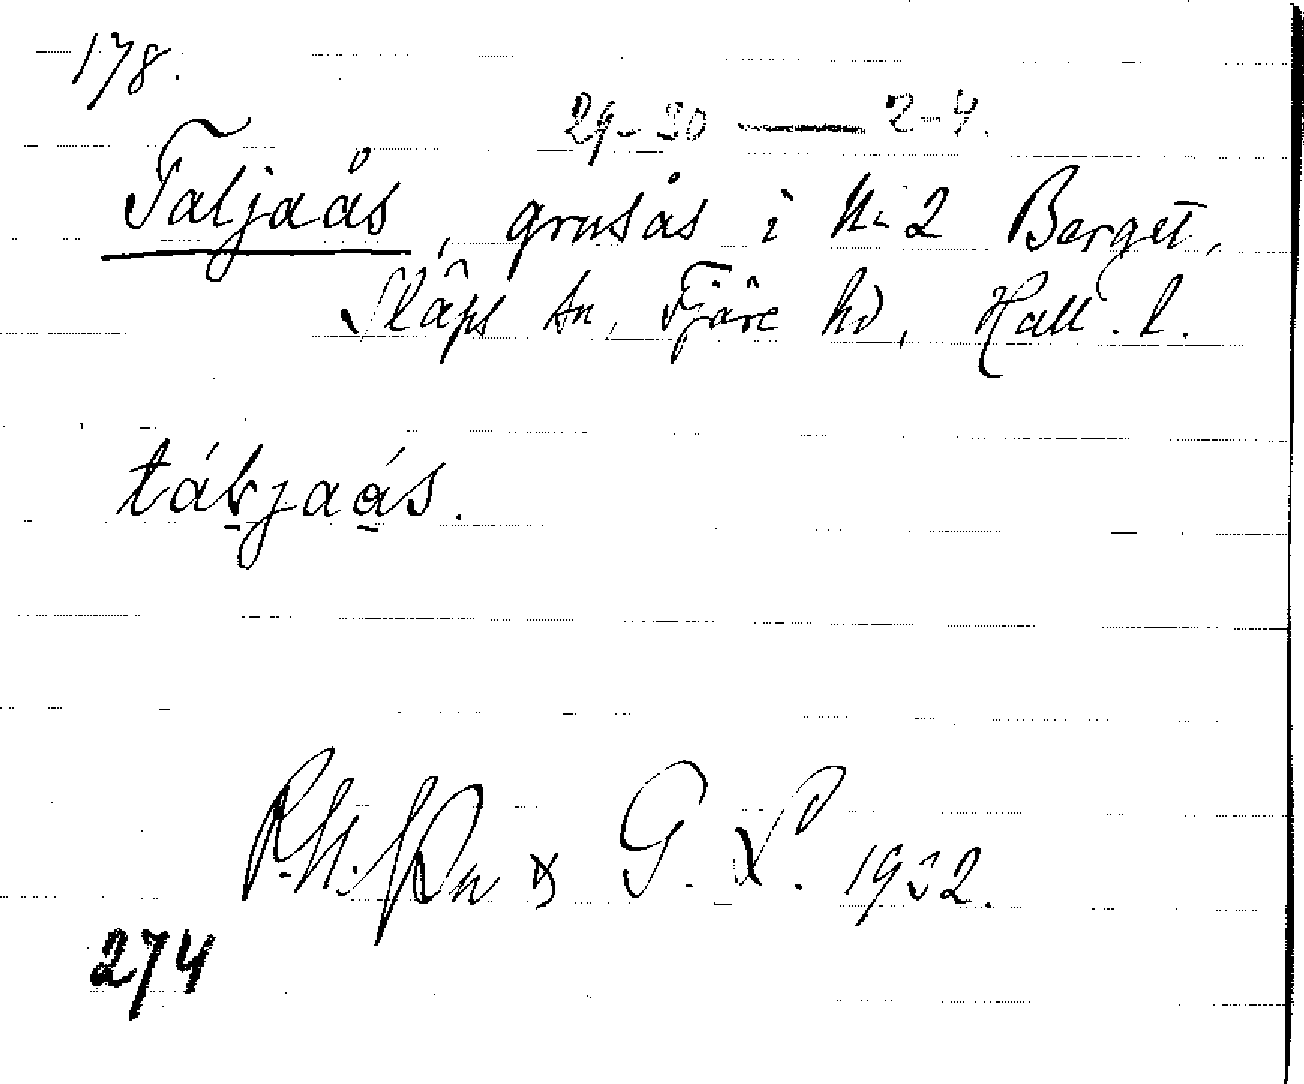 178.
29-30 — 2-4.
Taljaås, grusås i N:2 Berget,
Släps sn, Fjäre hd, Hall. l.
G. L. 1932.
274